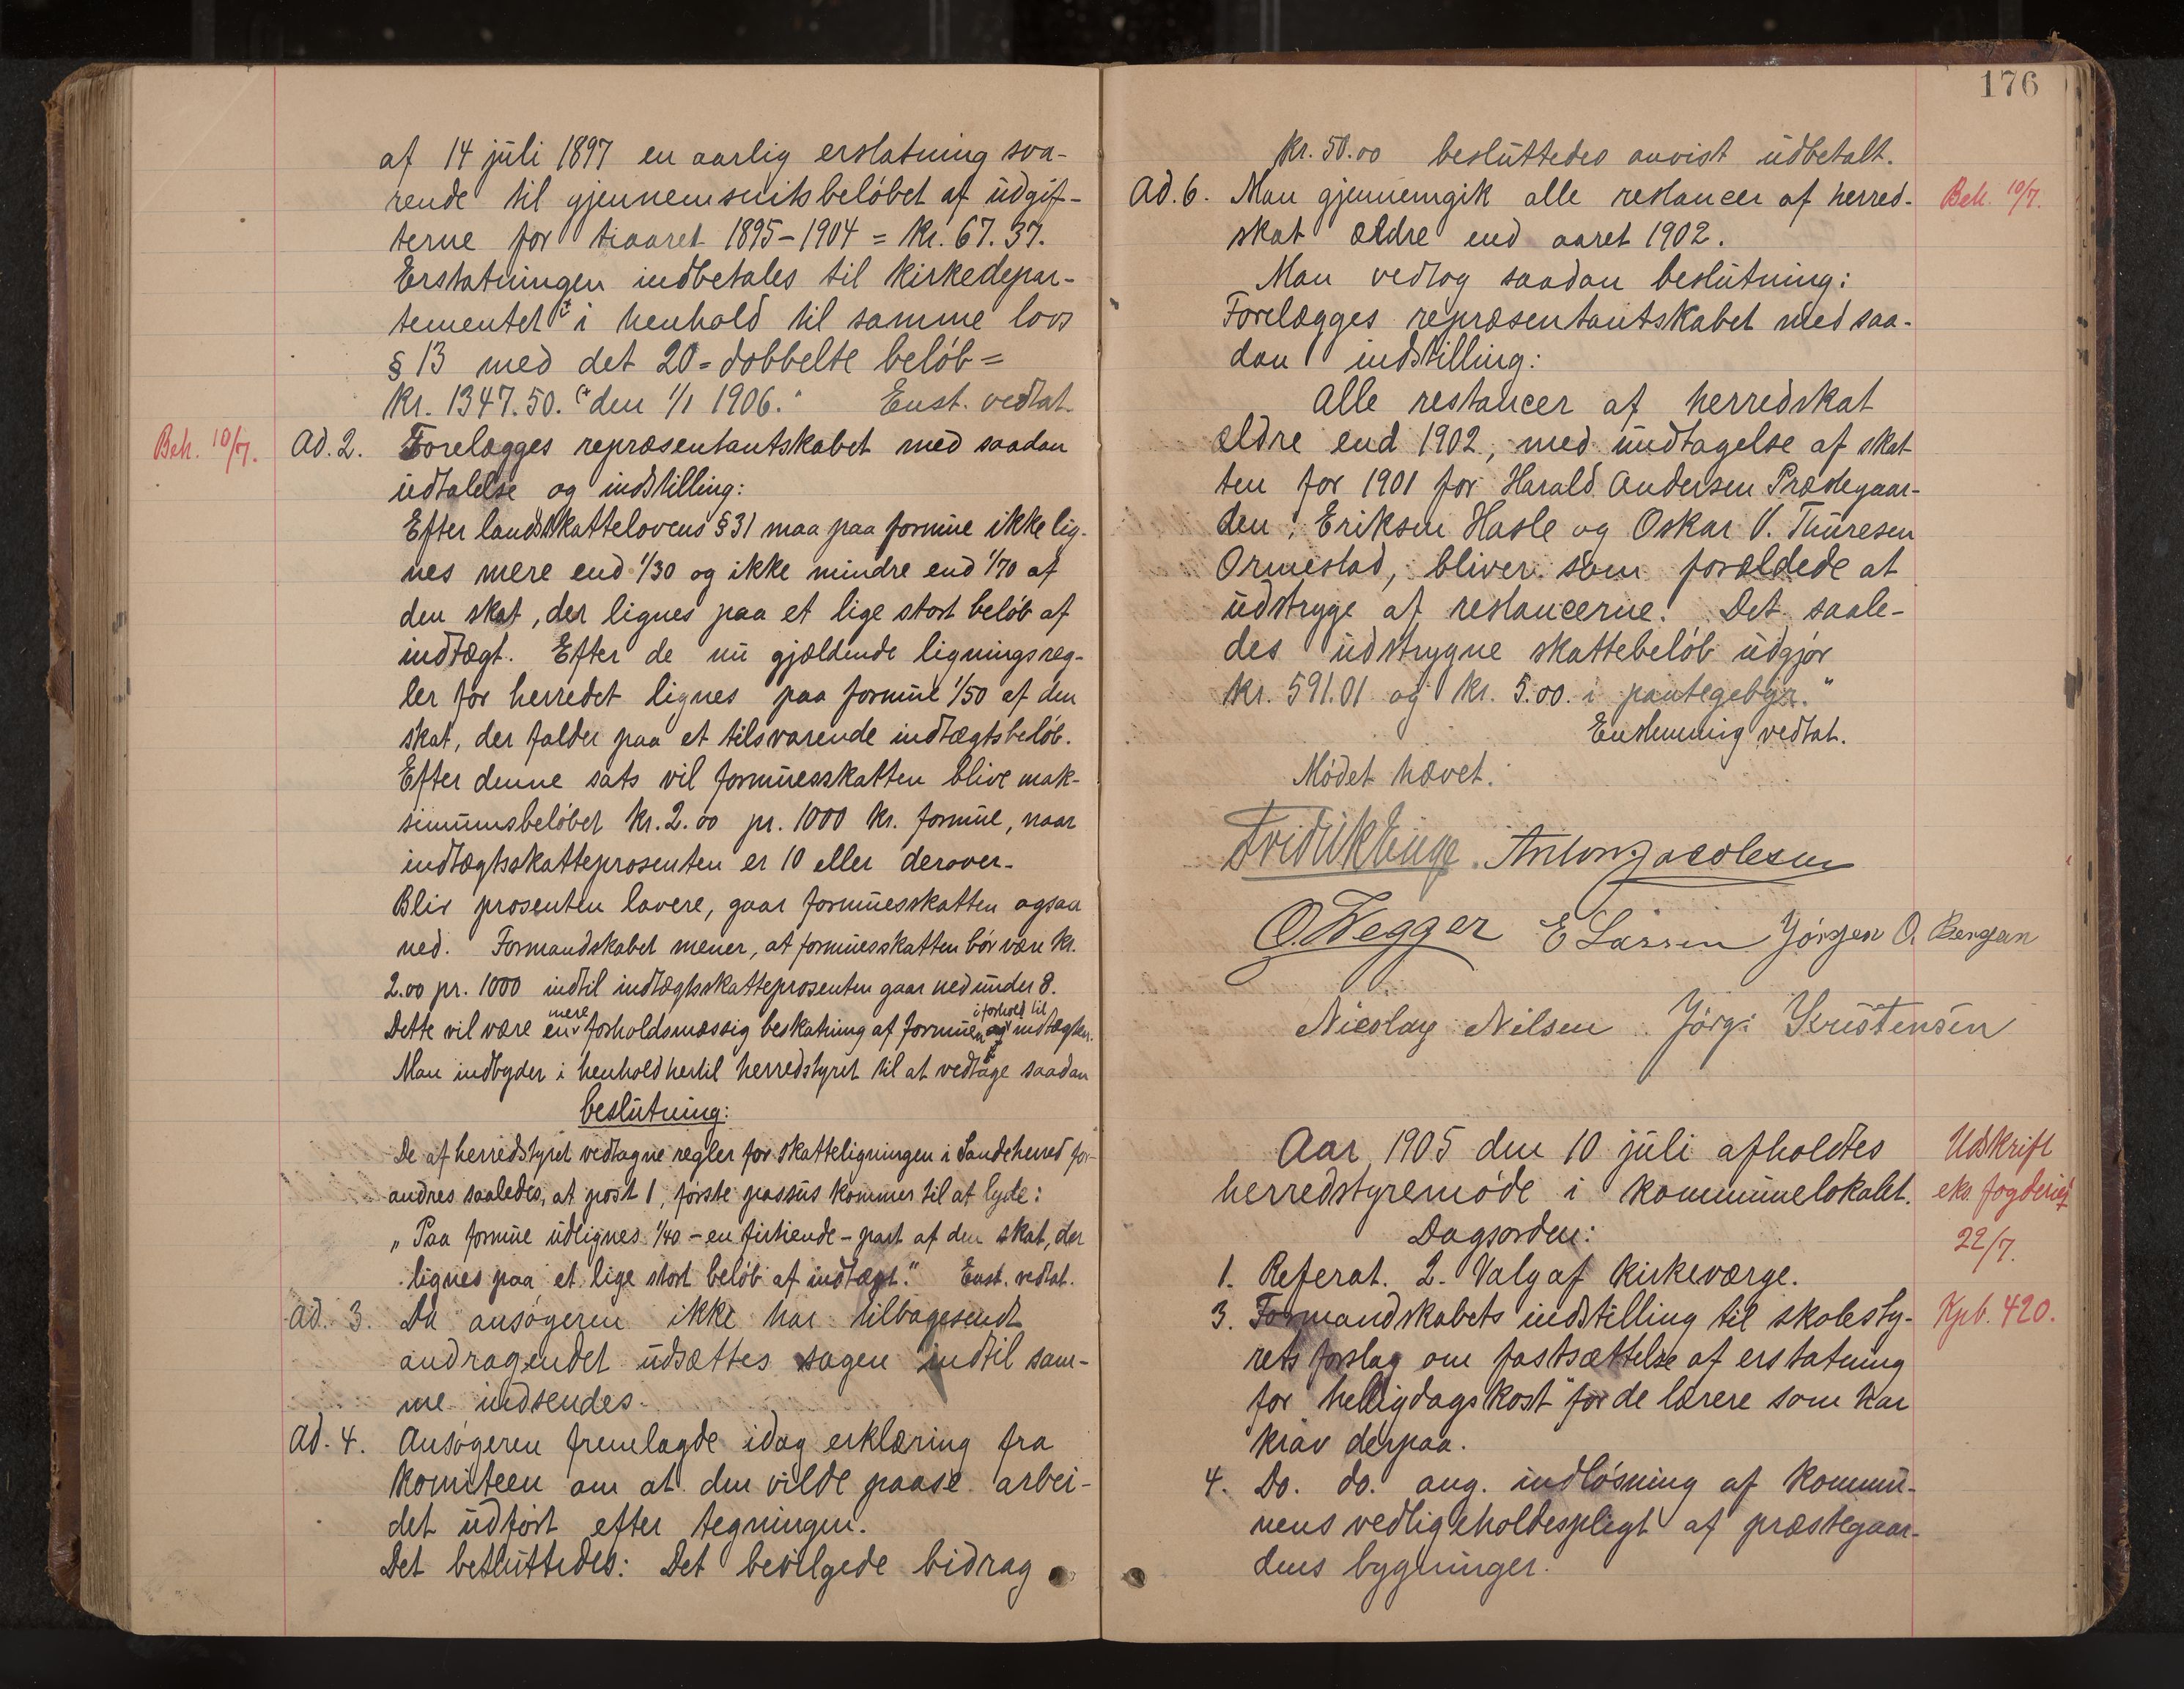 af 14 juli 1897 en aarlig erstatning sva-
rende til gjennemsnitsbeløbet af udgif-
terne for tiaaret 1895-1904 = kr. 67.37.
Erstatningen indbetales til kirkedepar-
tementet i henhold til samme lovs
§ 13 med det 20-dobbelte beløb =
kr. 1347.50. den 1/1 1906." Enst. vedtat.
Beh. 10/7.
Ad. 2. Forelægges repræsentantskabet med saadan
udtalelse og indstilling:
Efter landsskattelovens § 31 maa paa formue ikke lig-
nes mere end 1/30 og ikke mindre end 1/70 af
den skat, der lignes paa et lige stort beløb af
indtægt. Efter de nu gjældende ligningsreg-
ler for herredet lignes paa formue 1/50 af den
skat, der falder paa et tilsvarende indtægtsbeløb.
Efter denne sats vil formuesskatten blive mak-
simumsbeløbet kr. 2.00 pr. 1000 kr. formue, naar
indtægtsskatteprosenten er 10 eller derover.
Blir prosenten lavere, gaar formuesskatten ogsaa
ned. Formandskabet mener, at formuesskatten bør være kr.
2.00 pr. 1000 indtil indtægtsskatteprosenten gaar ned under 8.
Dette vil være en mere forholdsmæssig beskatning af formuen i forhold til indtægten.
Man indbyder i henhold hertil herredstyret til at vedtage saadan
beslutning:
De af herredstyret vedtagne regler for skatteligningen i Sandeherred for-
andres saaledes, at post 1, første passus kommer til at lyde:
"Paa formue udlignes 1/40 - en firtiende - part af den skat, der
lignes paa et lige stort beløb af indtægt." Enst. vedtat.
Ad. 3. Da ansøgeren ikke har tilbagesendt
andragendet udsættes sagen indtil sam-
me indsendes.
Ad. 4. Ansøgeren fremlagde idag erklæring fra
komiteen om at den vilde paase arbei-
det udført efter tegningen.
Det besluttedes: Det bevilgede bidrag
176
kr. 50.00 besluttedes anvist udbetalt.
Ad. 6. Man gjennemgik alle restancer af herred-
Beh. 10/7.
skat ældre end aaret 1902.
Man vedtog saadan beslutning:
Forelægges repræsentantskabet med saa-
dan indstilling:
Alle restancer af herredskat
ældre end 1902, med undtagelse af skat-
ten for 1901 for Harald Andersen Præstegaar-
den, Eriksen Hasle og Oskar V. Thuresen
Ormestad, bliver som forældede at
udstryge af restancerne. Det saale-
des udstrygne skattebeløb udgjør
kr. 591.01 og kr. 5.00 i pantegebyr."
Enstemmig vedtat.
Mødet hævet.
Fridrik Enge. Anton Jacobsen
O. Wegger E Larsen Jørgen O. Bergan
Nicolay Nilsen Jørg: Kristensen
Aar 1905 den 10 juli afholdtes
Udskrift
herredstyremøde i kommunelokalet.
eks. fogderiet
Dagsorden:
22/7.
1. Referat. 2. Valg af kirkeværge.
3. Formandskabets indstilling til skolesty-
Kpb. 420.
rets forslag om fastsættelse af erstatning
for "helligdagskost" for de lærere som har
krav derpaa.
4. Do. do. ang. indløsning af kommu-
nens vedligeholdespligt af præstegaar-
dens bygninger.